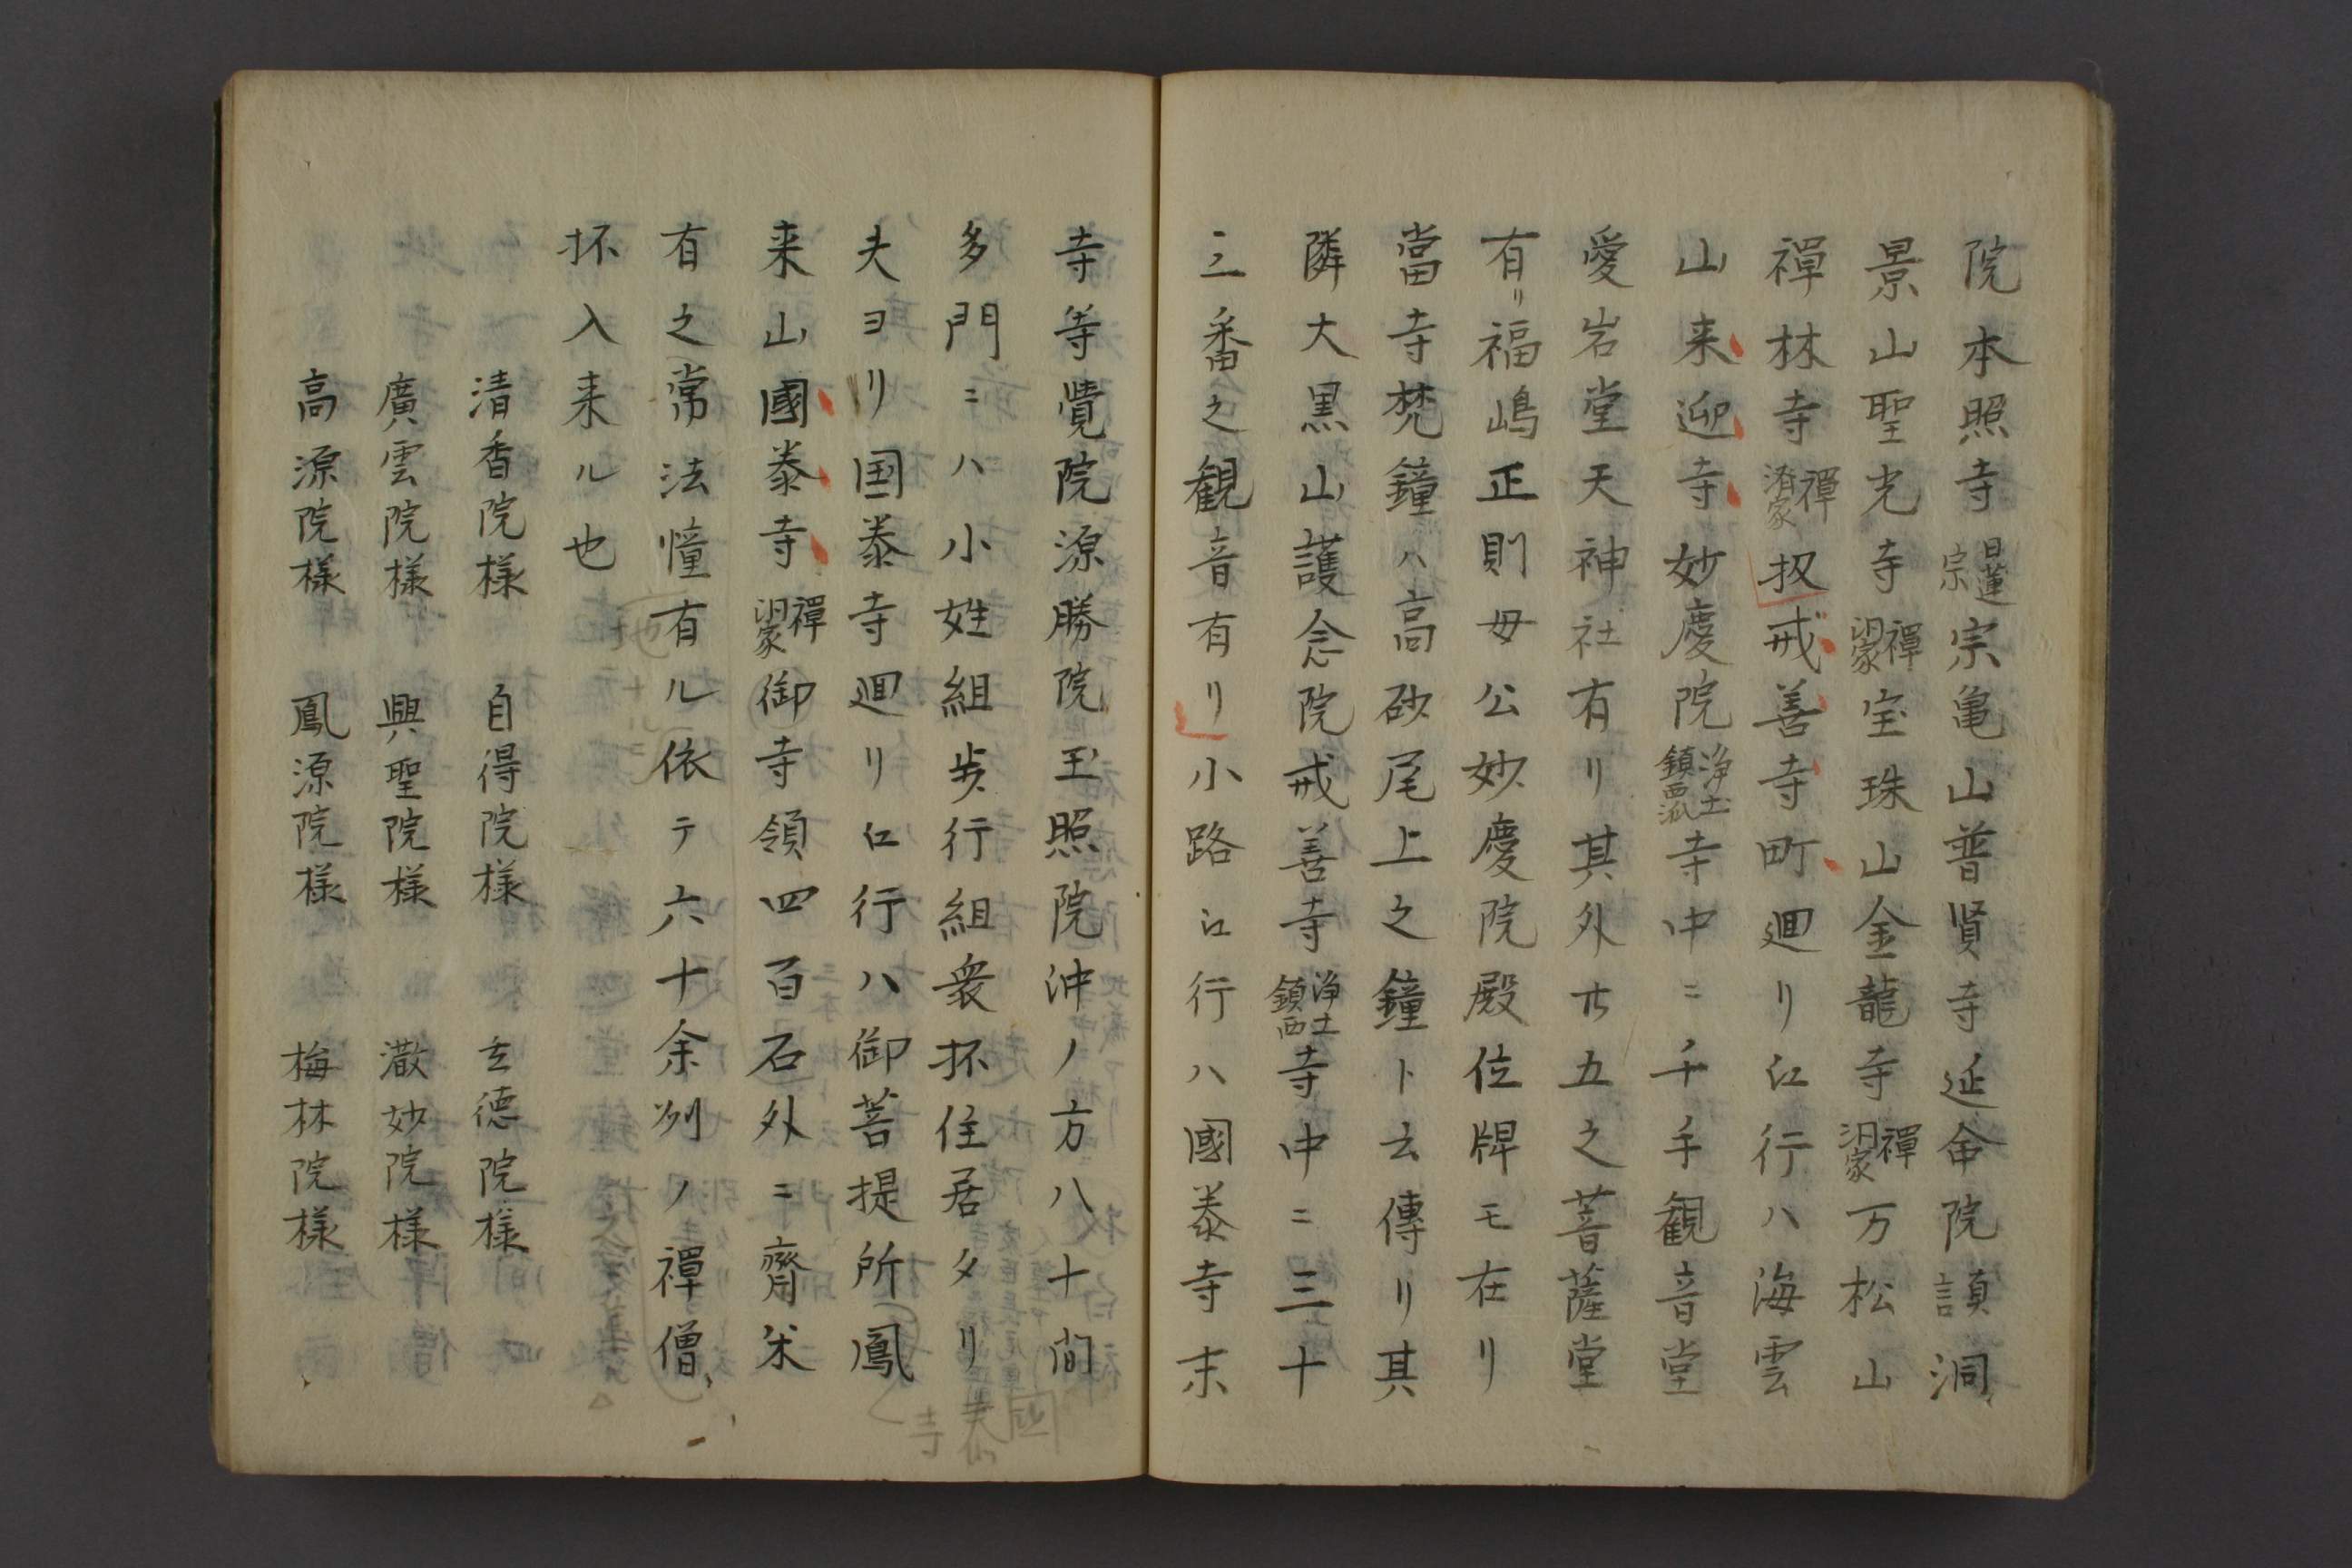 院本照寺日蓮宗宗亀山普賢寺延命院頴洞
景山聖光寺禪洞家宝珠山金龍寺禪洞家万松山
禪林寺禪済家扨戒善寺町廻リ江行ハ海雲
山来迎寺妙慶院浄土鎮西派寺中ニ千手観音堂
愛岩堂天神社有リ其外廿五之菩薩堂
有リ福嶋正則母公妙慶院殿位牌モ在リ
當寺梵鐘ハ高砂尾上之鐘ト云傳リ其
隣大黒山護念院戒善寺浄土鎮西寺中ニ三十
三番之観音有リ小路江行ハ國泰寺末
寺等覺院源勝院玉照院沖ノ方八十間
多門ニハ小姓組歩行組衆抔住居タリ
夫ヨリ国泰寺廻リ江行ハ御菩提所鳳
来山國泰寺禪洞家御寺領四百石外ニ齋米
有之常法憧有ル依テ六十余列ノ禪僧
抔入来ル也
清香院様 自得院様 玄德院様
廣雲院様 興聖院様 澂妙院様
高源院様 鳳源院様 梅林院様
國泰寺